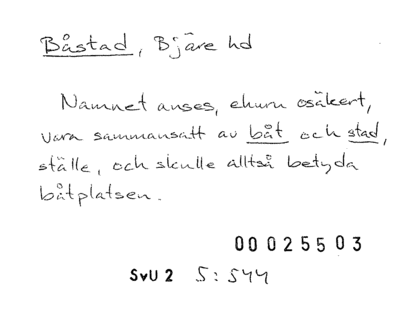 Båstad, Bjäre hd
Namnet anses, ehuru osäkert,
vara sammansatt av båt och stad,
ställe, och skulle alltså betyda
båtplatsen.
00025503
SvU 2 5:544